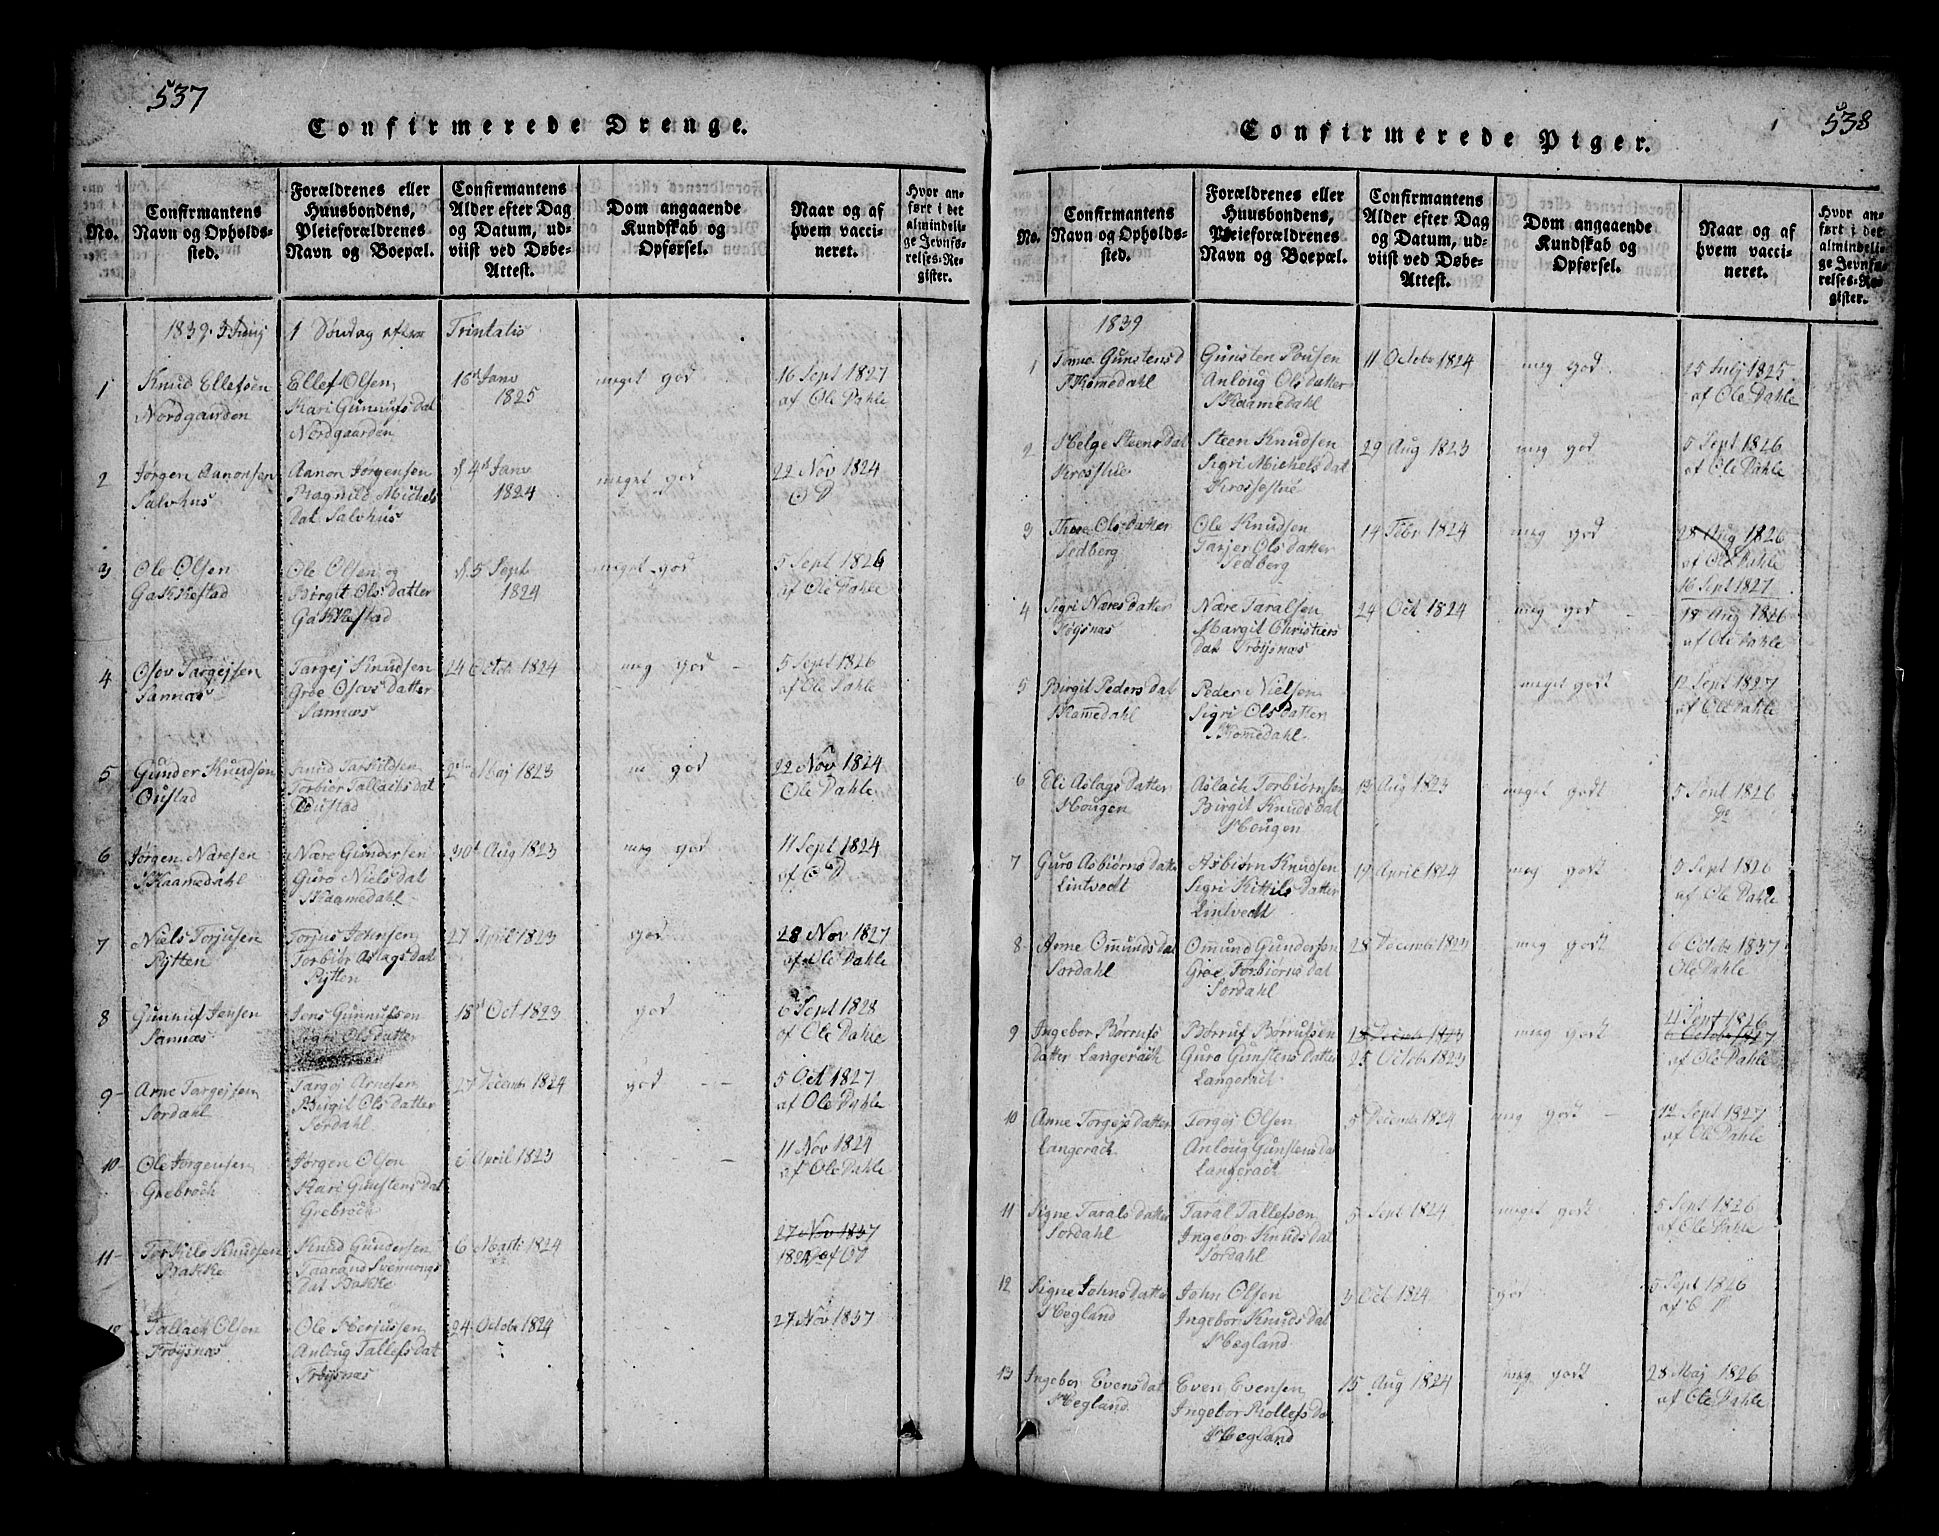 537
Confirmerede Drenge.
No.
Confirmantens
Navn og Opholds-
sted.
Forældrenes eller
Huusbondens,
Pleieforældrenes
Navn og Boepæl.
Confirmantens
Alder efter Dag
og Datum, ud-
viist ved Døbe-
Attest.
Dom angaaende
Kundskab og
Opførsel.
Naar og af
hvem vacci-
neret.
Hvor an-
ført i det
almindeli-
ge Jevnfø-
relses-Re-
gister.
1839. 1 Søndag efter Trinitatis
1
Knud Ellefsen
Nordgaarden
Ellef Olsen
Kari Gunnufs dat
Nordgaarden
16 Janv
1825
meget god
16 Sept 1827
af Ole Dahle
2
Jørgen Aanonsen
Salvhus
Aanon Jørgensen
Ragnild Michels
Dat Salvhus
d 4 Janv
1824
meget god
22 Nov 1824
O D
3
Ole Olsen
Gakkestad
Ole Olsen og
Birgit Olsdatter
Gakkestad
d. 5 Sept
1824
meget god
5 Sept 1826
af Ole Dahle
4
Osov Targejsen
Sannæs
Targej Knudsen
Groe Osovs Datter
Sannæs
24 Octob 1824
meg god
5 Sept 1826
af Ole Dahle
5
Gunder Knudsen
Oustad
Knud Tarkildsen
Torbior Tallachs dat
Oustad
Maj 1823
m god
22 Nov 1824
Ole Dahle
6
Jørgen Næresen
Kaamedahl
Nære Gundersen
Guro Niels dat
Kaamedahl
30 Aug 1823
meg god
11 Sept 1824
af O D
7
Niels Torjusen
Rytten
Torjus Johnsen
Torbior Aslags dat
Rytten
27 April 1823
god
28 Nov 1827
af Ole Dahle
8
Gunnuf Jensen
Sannæs
Jens Gunnufsen
Sigri Olsdatter
18 Oct 1823
god
6 Sept 1828
af Ole Dahle
9
Arne Targejsen
Sordahl
Targej Arnesen
Birgit Olsdatter
Sordahl
27 Decembr 1824
god
5 Oct 1827
af Ole Dahle
10
Ole Jørgensen
Grebroch
Jørgen Olsen
Kari Gunstens dat
Grebroch
6 April 1823
11 Nov 1824
af Ole Dahle
11
Torkild Knudsen
Bakke
Knud Gundersen
Taarand Svennongs
dat Bakke
6 Marti 1824
27 Nov 1837
1824 af OD
Tallach Olsen
Frøysnæs
Ole Herjusen
Anloug Tallefs dat
Frøysnæs
24 Octobr 1824
27 Nov 1837
538
Confirmerede Piger.
No.
Confirmantens
Navn og Opholds-
sted.
Forældrenes eller
Huusbondens,
Pleieforældrenes
Navn og Boepæl.
Confirmantens
Alder efter Dag
og Datum, ud-
viist ved Døbe-
Attest.
Dom angaaende
Kundskab og
Opførsel.
Naar og af
hvem vacci-
neret.
Hvor an-
ført i det
almindeli-
ge Jevnfø-
relses-Re-
gister.
1839
1
Tone Gunstensd
Gunsten Pousen
Anloug Olsdatter
Kaamedahl
11 Octobr 1824
meg god
15 Julj 1825
af Ole Dahle
2
Helge Steens dat
Steen Knudsen
Sigri Michels dat
29 Aug 1823
meg god
5 Sept 1826
af Ole Dahle
3
Olsdatter
Sedberg
Ole Knudsen
Tarjer Olsdatter
Sedberg
14 Febr 1824
meg god
28 Aug 1826
af Ole Dahle
16 Sept 1827
4
Sigri Næresdatter
Frøysnæs
Nære Taralsen
Margit Christens
dat Frøysnæs
24 Oct 1824
meg god
18 Aug 1826
af Ole Dahle
5
Birgit Peders dat
Peder Nielsen
Sigri Olsdatter
meget godt
12 Sept 1827
af Ole Dahle
6
Eli Aslagsdatter
Hougen
Aslach Torbiørnsen
Birgit Knuds dat
Hougen
13 Aug 1823
meget godt
5 Sept 1826
Do
7
Guro Asbiørns datter
Lintvedt
Asbiørn Knudsen
Sigri Kittils datter
Lintvedt
19 April 1824
meg godt
5 Sept 1826
af Ole Dahle
8
Anne Omunds dat
Sordahl
Omund Gundersen
Groe Torbiørns dat
Sordahl
28 Decembr 1823
meg godt
6 Octobr 1837
Ole Dahle
9
Ingebor Børrufs
datter Langerach
Børruf Børrufsen
Guro Gunstens datter
Langerach
13 Decemb 1823
25 Octobr 1823
meg godt
4 Sept 1826
6 Octobr 1827
af Ole Dahle
10
Anne Torgejs datter
Langerach
Torgej Olsen
Anloug Gunstens dat
Langerach
5 Decembr 1824
meg godt
12 Sept 1827
af Ole Dahle
11
Signe Tarals datter
Sordahl
Taral Tallefsen
Ingebor Knuds dat
Sordahl
5 Sept 1824
meget godt
5 Sept 1826
af Ole Dahle
12
Signe Johns datter
Hegland
John Olsen
Ingebor Knuds dat
Hegland
3 Oct 1824
god
5 Sept 1826
af O D
13
Ingebor Evens dat
Hegland
Even Evensen
Ingebor Rollefs da
Hegland
15 Aug 1824
meg godt
28 Maj 1826
af Ole Dahle